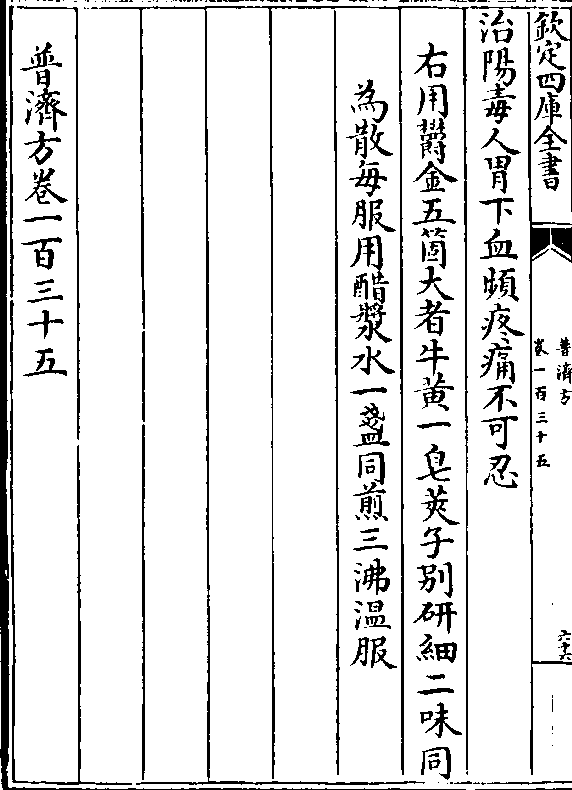 欽定四庫全書
普濟方
卷一百三十五
六十六
治陽毒入胃下血頻疼痛不可忍
右用欝金五箇大者牛黄一皂莢子别研細二味同
為散每服用醋漿水一盞同煎三沸温服
普濟方卷一百三十五